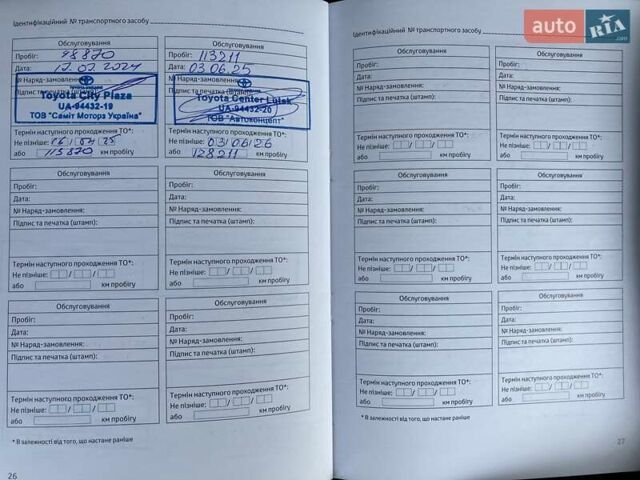 Ідентифікаційний № транспортного засобу
Обслуговування
Пробіг: 98870
Дата: 17.07.2024
№ Наряд-замовлення:
Підпис та печатка (штамп):
Toyota City Plaza
UA-94432-19
ТОВ "Саміт Моторз Україна"
Термін наступного проходження ТО*:
Не пізніше: 16/07/25
або 113870 км пробігу
Обслуговування
Пробіг: 113211
Дата: 03.06.25
№ Наряд-замовлення:
Підпис та печатка (штамп):
Toyota Center Lutsk
UA-94432-26
ТОВ "Автоконцепт"
Термін наступного проходження ТО*:
Не пізніше: 03/06/26
або 128211 км пробігу
Обслуговування
Пробіг:
Дата:
№ Наряд-замовлення:
Підпис та печатка (штамп):
Термін наступного проходження ТО*:
Не пізніше: / /
або км пробігу
Обслуговування
Пробіг:
Дата:
№ Наряд-замовлення:
Підпис та печатка (штамп):
Термін наступного проходження ТО*:
Не пізніше: / /
або км пробігу
Обслуговування
Пробіг:
Дата:
№ Наряд-замовлення:
Підпис та печатка (штамп):
Термін наступного проходження ТО*:
Не пізніше: / /
або км пробігу
Обслуговування
Пробіг:
Дата:
№ Наряд-замовлення:
Підпис та печатка (штамп):
Термін наступного проходження ТО*:
Не пізніше: / /
або км пробігу
* В залежності від того, що настане раніше
26
Ідентифікаційний № транспортного засобу
Обслуговування
Пробіг:
Дата:
№ Наряд-замовлення:
Підпис та печатка (штамп):
Термін наступного проходження ТО*:
Не пізніше: / /
або км пробігу
Обслуговування
Пробіг:
Дата:
№ Наряд-замовлення:
Підпис та печатка (штамп):
Термін наступного проходження ТО*:
Не пізніше: / /
або км пробігу
Обслуговування
Пробіг:
Дата:
№ Наряд-замовлення:
Підпис та печатка (штамп):
Термін наступного проходження ТО*:
Не пізніше: / /
або км пробігу
Обслуговування
Пробіг:
Дата:
№ Наряд-замовлення:
Підпис та печатка (штамп):
Термін наступного проходження ТО*:
Не пізніше: / /
або км пробігу
Обслуговування
Пробіг:
Дата:
№ Наряд-замовлення:
Підпис та печатка (штамп):
Термін наступного проходження ТО*:
Не пізніше: / /
або км пробігу
Обслуговування
Пробіг:
Дата:
№ Наряд-замовлення:
Підпис та печатка (штамп):
Термін наступного проходження ТО*:
Не пізніше: / /
або км пробігу
* В залежності від того, що настане раніше
27
auto RIA.com